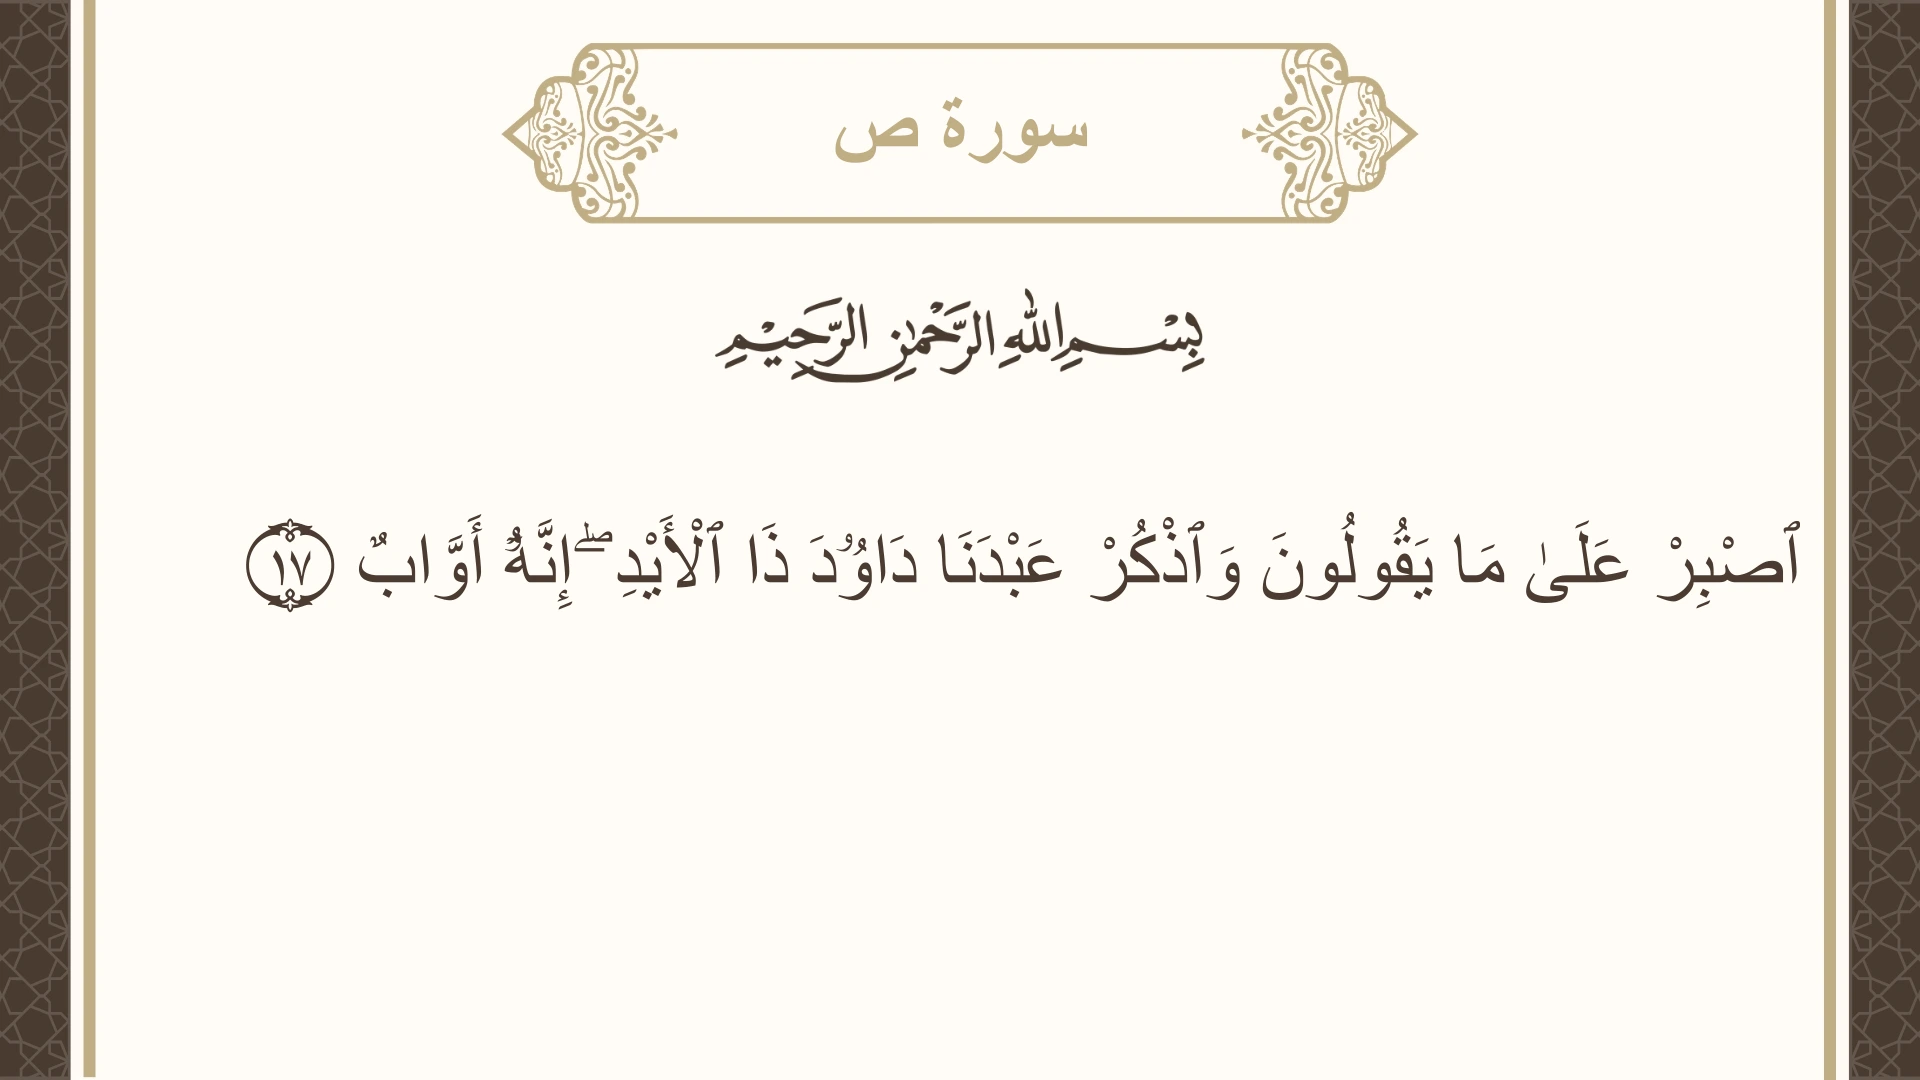 سورة ص
بِسْمِ اللهِ الرَّحْمٰنِ الرَّحِيْمِ
ٱصْبِرْ عَلَىٰ مَا يَقُولُونَ وَٱذْكُرْ عَبْدَنَا دَاوُۥدَ ذَا ٱلْأَيْدِ ۖ إِنَّهُۥٓ أَوَّابٌ ١٧